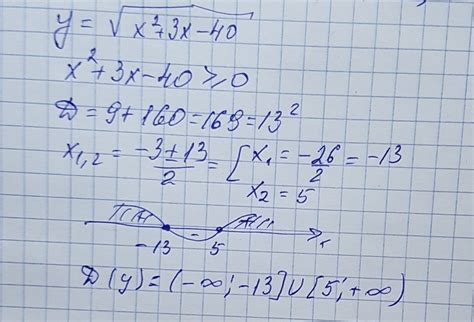 y = √(x²+3x-40)
x²+3x-40 ≥ 0
D = 9+160 = 169 = 13²
x₁,₂ = (-3±13)/2 = [ x₁ = -26/2 = -13
x₂ = 5
-13 - 5 x
D(y) = (-∞; -13] U [5; +∞)